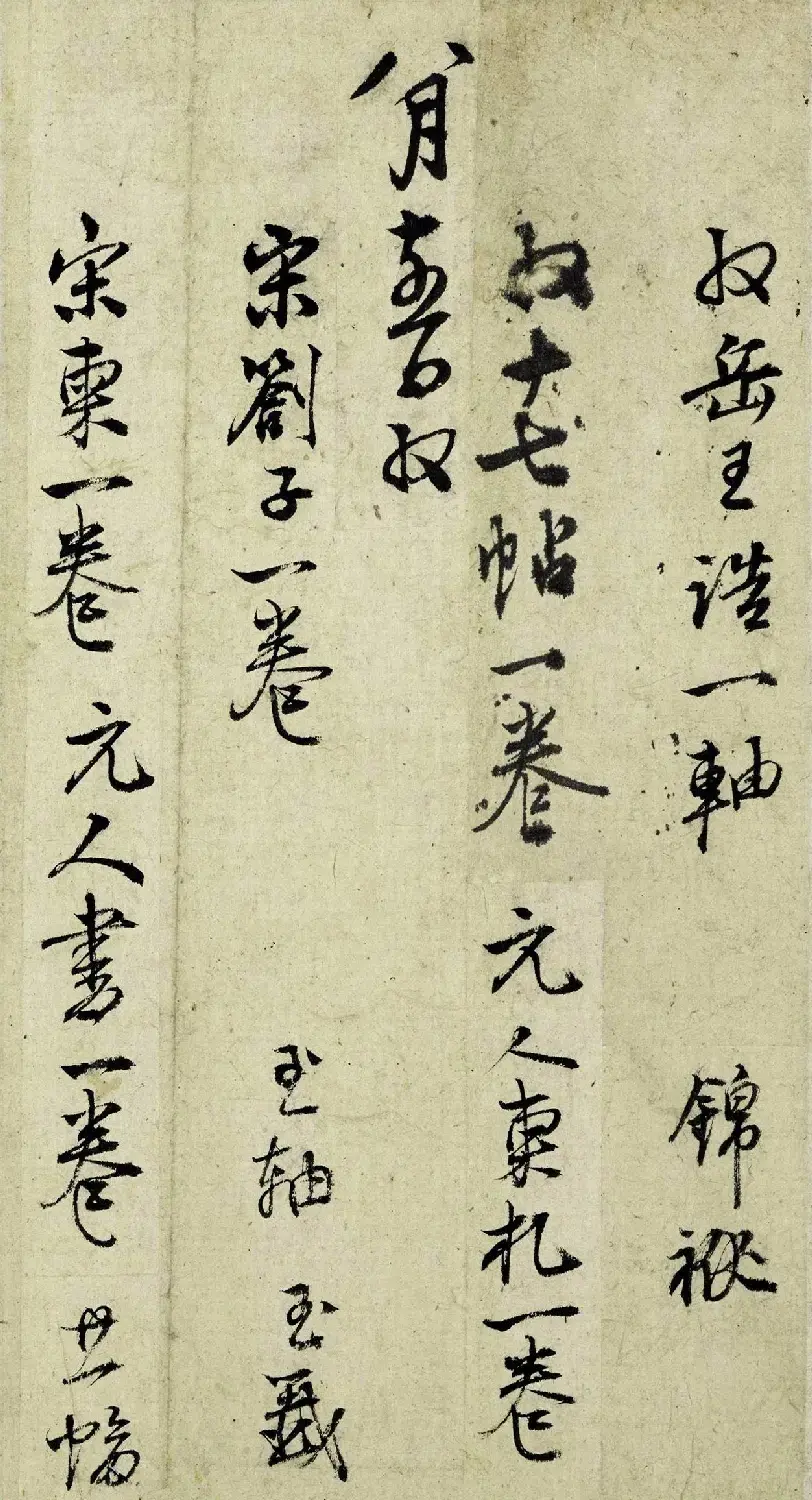 收岳王誥一軸 錦袱
收十七帖一卷 元人柬札一卷
八月日收
宋劄子一卷 玉軸 玉籤
宋柬一卷 元人書一卷 幅